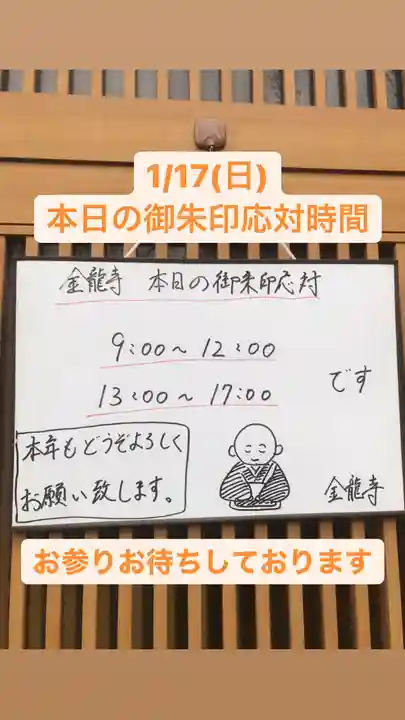 1/17(日)
本日の御朱印応対時間
金龍寺 本日の御朱印応対
9:00〜12:00
13:00〜17:00
です
本年もどうぞよろしく
お願い致します。
金龍寺
お参りお待ちしております